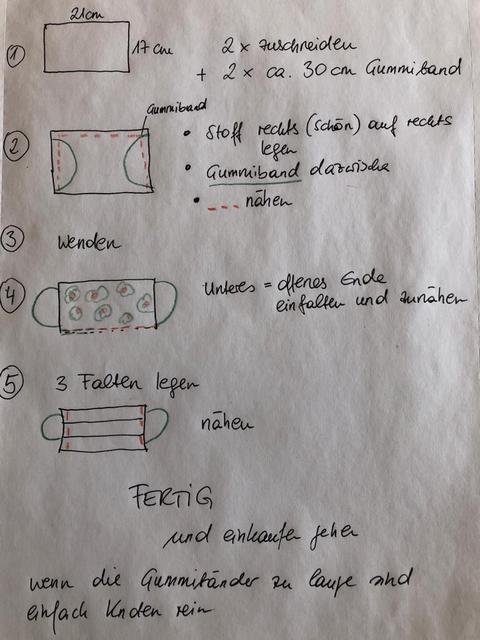 21cm
① 17 cm 2 x zuschneiden
+ 2 x ca. 30 cm Gummiband
Gummiband
② • Stoff rechts (schön) auf rechts
legen
• Gummiband dazwische
• --- nähen
③ wenden
④ Unteres = offenes Ende
einfalten und zunähen
⑤ 3 Falten legen
nähen
FERTIG
und einkaufen gehen
wenn die Gummibänder zu lange sind
einfach Knoten rein